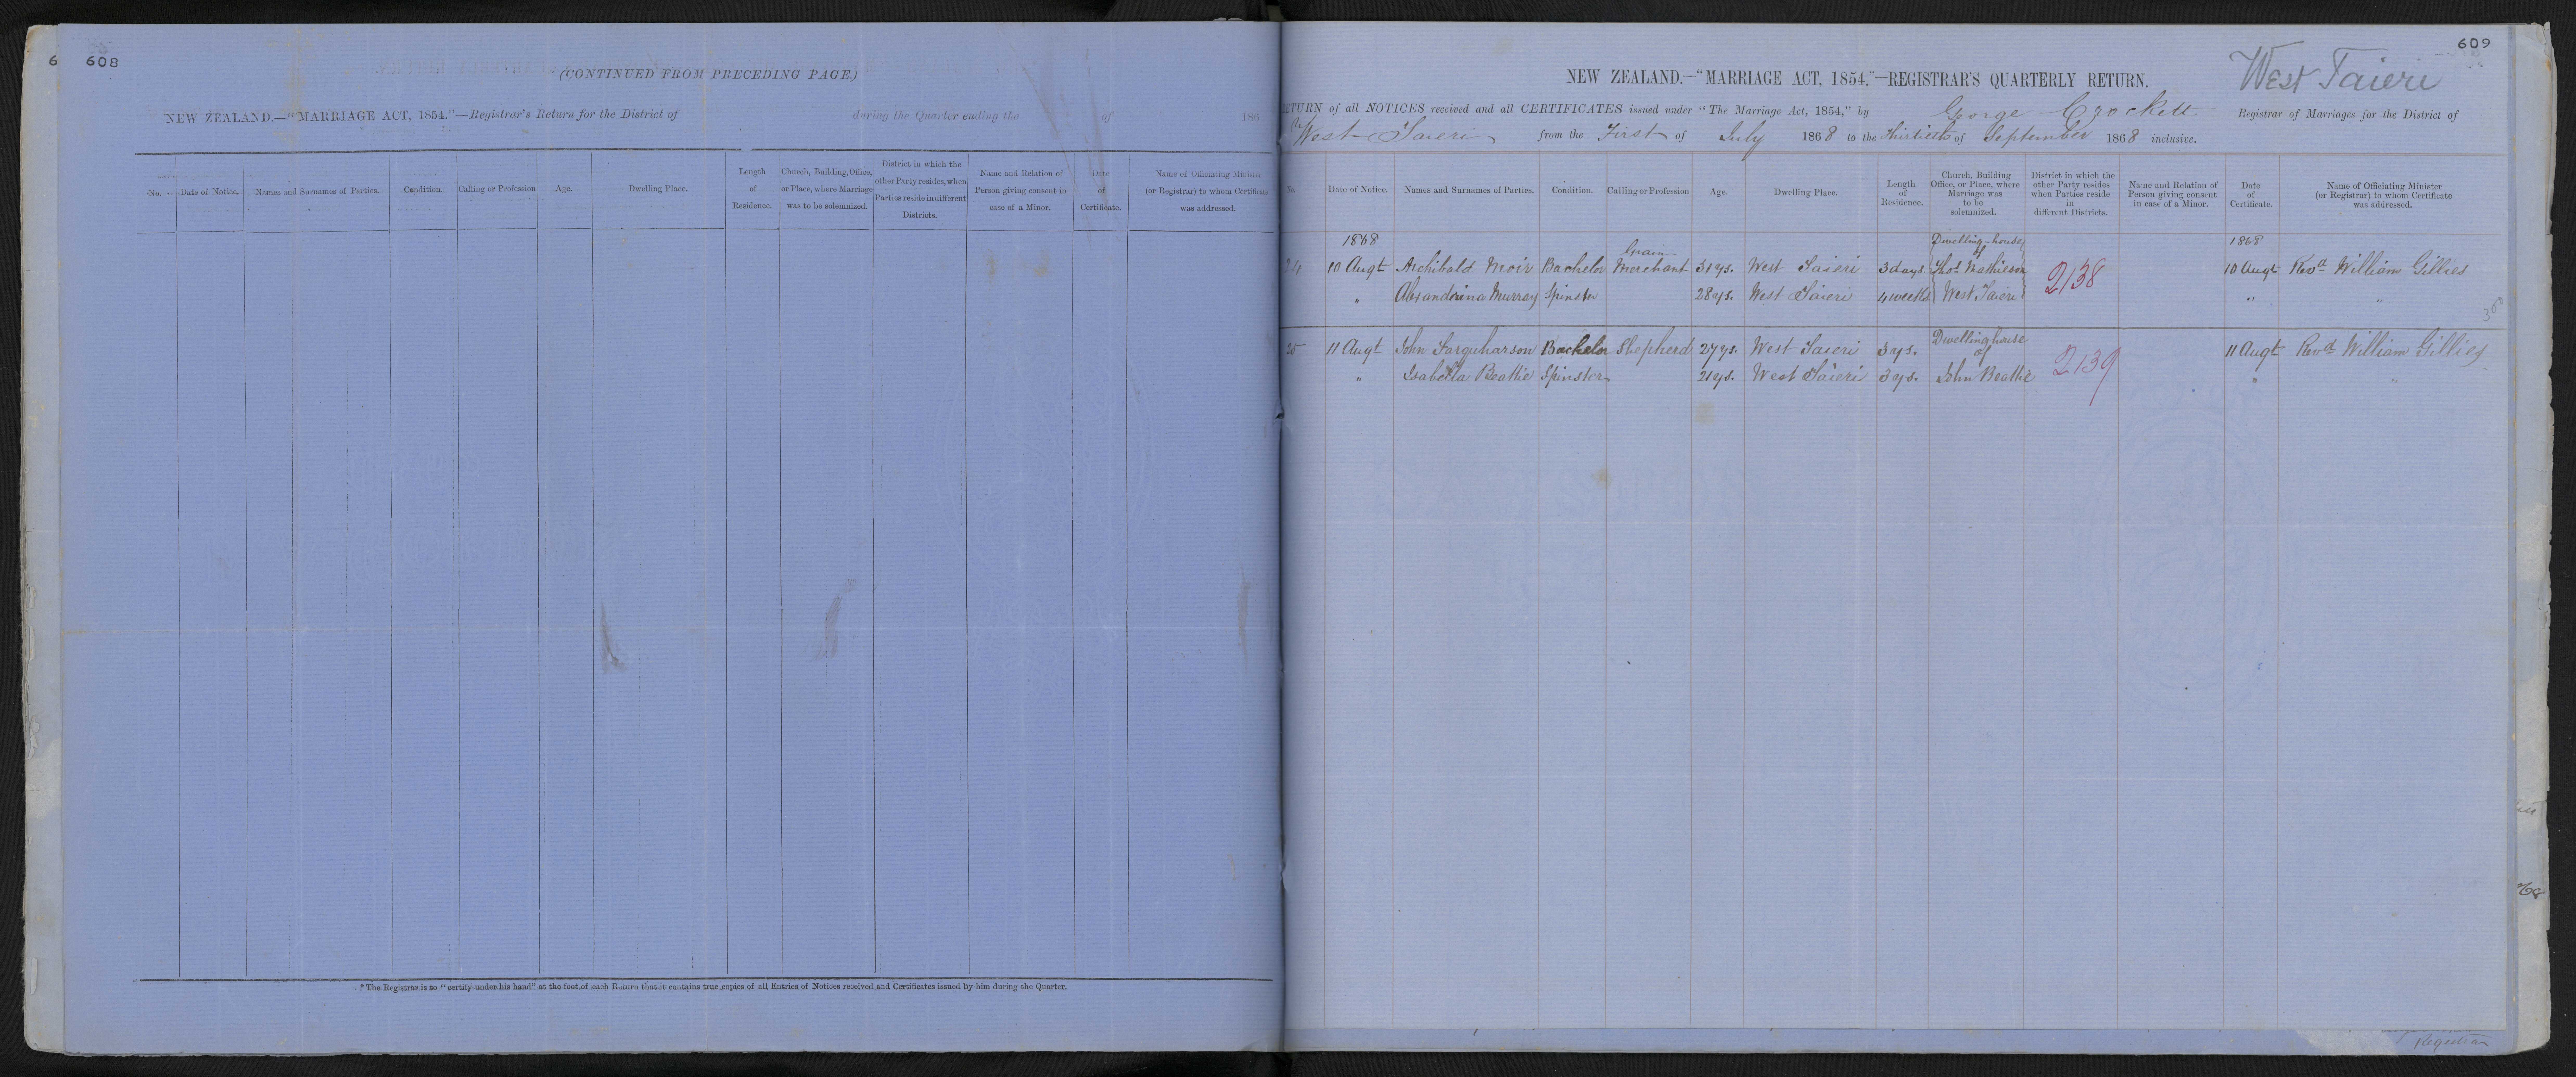 6 608
(CONTINUED FROM PRECEDING PAGE.)
NEW ZEALAND.—"MARRIAGE ACT, 1854."—Registrar's Return for the District of during the Quarter ending the of 186
No. Date of Notice. Names and Surnames of Parties. Condition. Calling or Profession Age. Dwelling Place. Length of Residence. Church, Building, Office, or Place, where Marriage was to be solemnized. District in which the other Party resides, when Parties reside in different Districts. Name and Relation of Person giving consent in case of a Minor. Date of Certificate. Name of Officiating Minister (or Registrar) to whom Certificate was addressed.
* The Registrar is to "certify under his hand" at the foot of each Return that it contains true copies of all Entries of Notices received and Certificates issued by him during the Quarter.
609
West Taieri
NEW ZEALAND.—"MARRIAGE ACT, 1854."—REGISTRAR'S QUARTERLY RETURN.
RETURN of all NOTICES received and all CERTIFICATES issued under "The Marriage Act, 1854," by George Crockett Registrar of Marriages for the District of
West Taieri from the First of July 1868 to the Thirtieth of September 1868 inclusive.
No. Date of Notice. Names and Surnames of Parties. Condition. Calling or Profession Age. Dwelling Place. Length of Residence. Church, Building Office, or Place, where Marriage was to be solemnized. District in which the other Party resides when Parties reside in different Districts. Name and Relation of Person giving consent in case of a Minor. Date of Certificate. Name of Officiating Minister (or Registrar) to whom Certificate was addressed.
1868 Dwelling-house 1868
Grain of
24 10 Augt Archibald Moir Bachelor Merchant 31 ys. West Taieri 3 days Thos. Mathieson 2138 10 Augt Revd William Gillies
" Alexandrina Murray Spinster 28 ys. West Taieri 4 weeks West Taieri " "
Dwelling house
of
25 11 Augt John Farquharson Bachelor Shepherd 27 ys. West Taieri 3 ys. 2139 11 Augt Revd William Gillies
" Isabella Beattie Spinster 21 ys. West Taieri 3 ys. John Beattie " "
Registrar